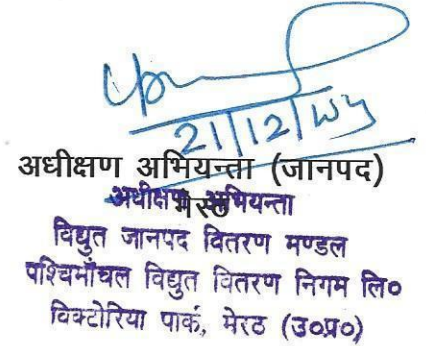 21/12/
अधीक्षण अभियन्ता (जानपद)
मेरठ
अधीक्षण अभियन्ता
विद्युत जानपद वितरण मण्डल
पश्चिमाँचल विद्युत वितरण निगम लि०
विक्टोरिया पार्क, मेरठ (उ०प्र०)